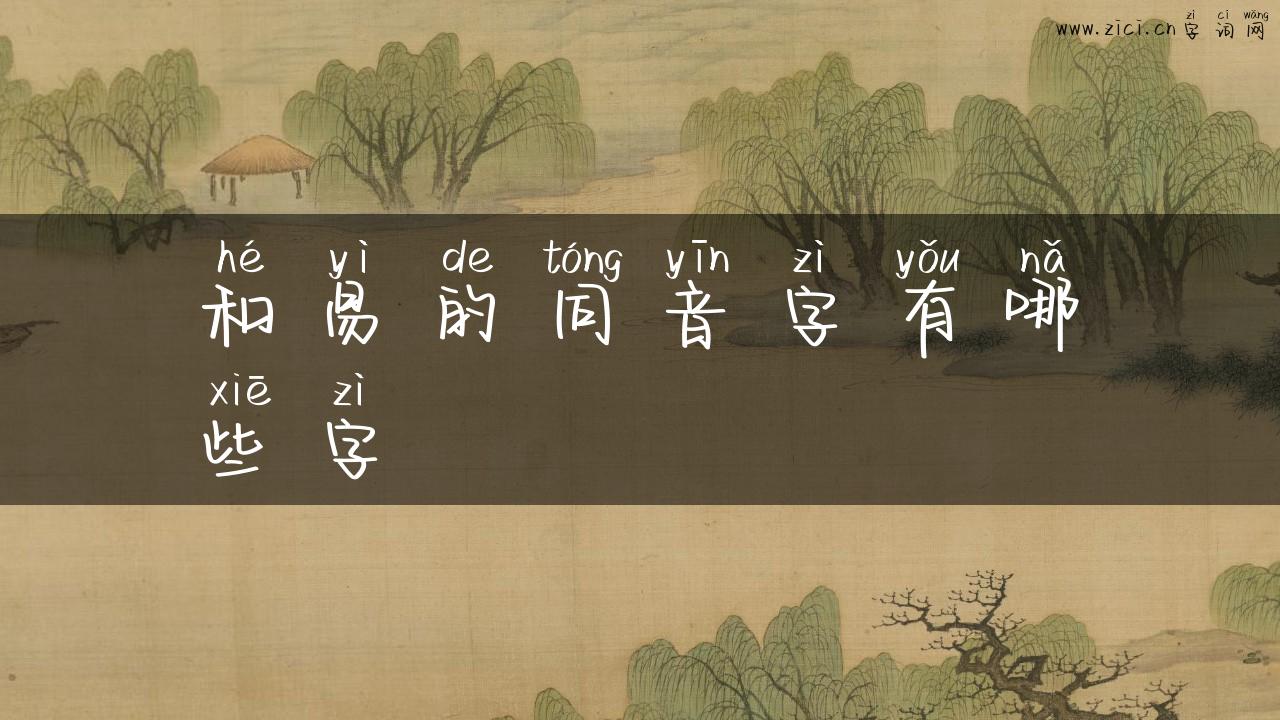 zì cí wǎng
www.zici.cn字词网
hé yì de tóng yīn zì yǒu nǎ
和易的同音字有哪
xiē zì
些字